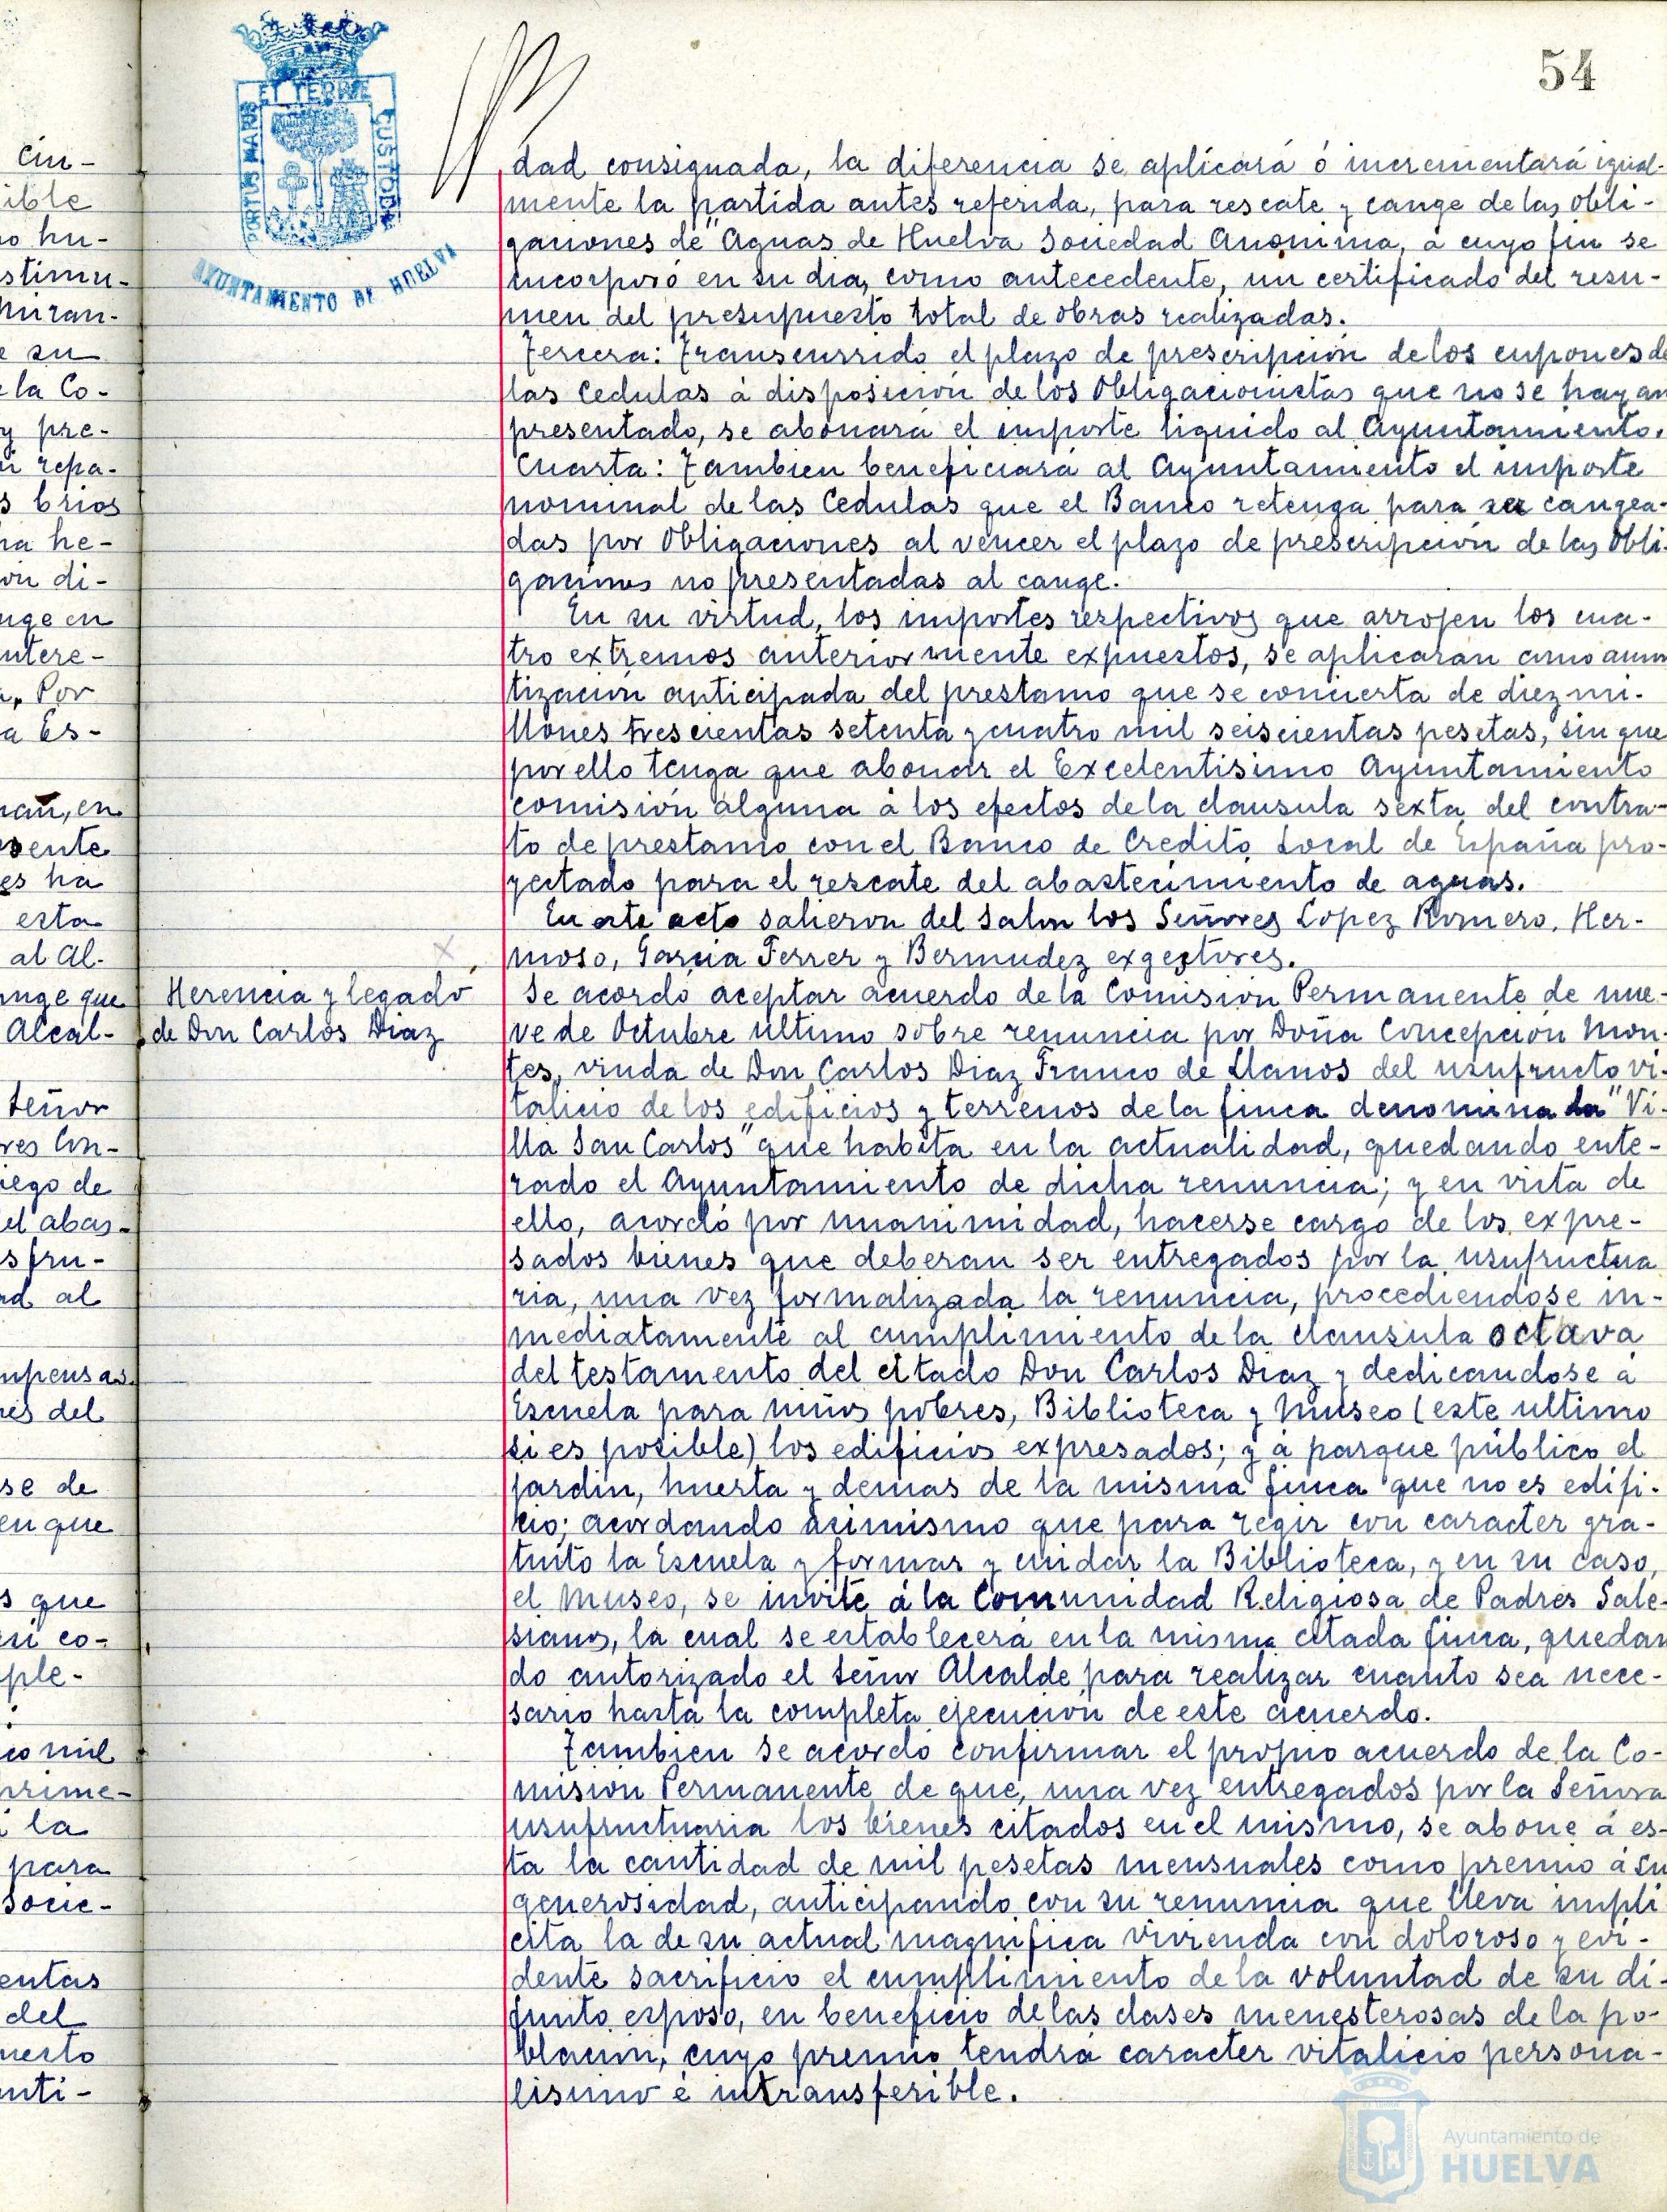 54
PORTUS MARIS ET TERRE CUSTODIA
AYUNTAMIENTO DE HUELVA
dad consignada, la diferencia se aplicará ó incrementará igual-
mente la partida antes referida, para rescate y cange de las obli-
gaciones de "Aguas de Huelva Sociedad Anonima, á cuyo fin se
incorporó en su dia, como antecedente, un certificado del resu-
men del presupuesto total de obras realizadas.
Tercera: Transcurrido el plazo de prescripción de los cupones de
las Cedulas á disposición de los Obligacionistas que no se hayan
presentado, se abonará el importe liquido al Ayuntamiento.
Cuarta: Tambien beneficiará al Ayuntamiento el importe
nominal de las Cedulas que el Banco retenga para ser cangea-
das por Obligaciones al vencer el plazo de prescripción de las Obli-
gaciones no presentadas al cange.
En su virtud, los importes respectivos que arrojen los cua-
tro extremos anteriormente expuestos, se aplicarán como amor
tización anticipada del prestamo que se concierta de diez mi-
llones trescientas setenta y cuatro mil seiscientas pesetas, sin que
por ello tenga que abonar el Excelentisimo Ayuntamiento
comisión alguna á los efectos de la clausula sexta del contra-
to de prestamo con el Banco de Credito Local de España pro-
yectado para el rescate del abastecimiento de aguas.
En este acto salieron del Salon los Señores Lopez Romero, Her-
moso, Garcia Ferrer y Bermudez exgestores.
Herencia y legado
de Don Carlos Diaz
Se acordó aceptar acuerdo de la Comisión Permanente de nue-
ve de Octubre ultimo sobre renuncia por Doña Concepción Mon-
tes, viuda de Don Carlos Diaz Franco de Llanos del usufructo vi-
talicio de los edificios y terrenos de la finca denominada "Vi-
lla San Carlos" que habita en la actualidad, quedando ente-
rado el Ayuntamiento de dicha renuncia; y en vista de
ello, acordó por unanimidad, hacerse cargo de los expre-
sados bienes que deberan ser entregados por la usufructua
ria, una vez formalizada la renuncia, procediendose in-
mediatamente al cumplimiento de la clausula octava
del testamento del citado Don Carlos Diaz y dedicandose á
Escuela para niños pobres, Biblioteca y Museo (este ultimo
si es posible) los edificios expresados; y á parque público el
jardin, huerta y demas de la misma finca que no es edifi-
cio; acordando asimismo que para regir con caracter gra-
tuito la Escuela y formar y cuidar la Biblioteca, y en su caso,
el Museo, se invite á la Comunidad Religiosa de Padres Sale-
sianos, la cual se establecerá en la misma citada finca, quedan
do autorizado el Señor Alcalde para realizar cuanto sea nece-
sario hasta la completa ejecución de este acuerdo.
Tambien se acordó confirmar el propio acuerdo de la Co-
misión Permanente de que, una vez entregados por la Señora
usufructuaria los bienes citados en el mismo, se abone á es-
ta la cantidad de mil pesetas mensuales como premio á su
generosidad, anticipando con su renuncia que lleva impli
cita la de su actual magnifica vivienda con doloroso y evi-
dente sacrificio el cumplimiento de la voluntad de su di-
funto esposo, en beneficio de las clases menesterosas de la po-
blación, cuyo premio tendrá caracter vitalicio persona-
lisimo é intransferible.
Ayuntamiento de
HUELVA